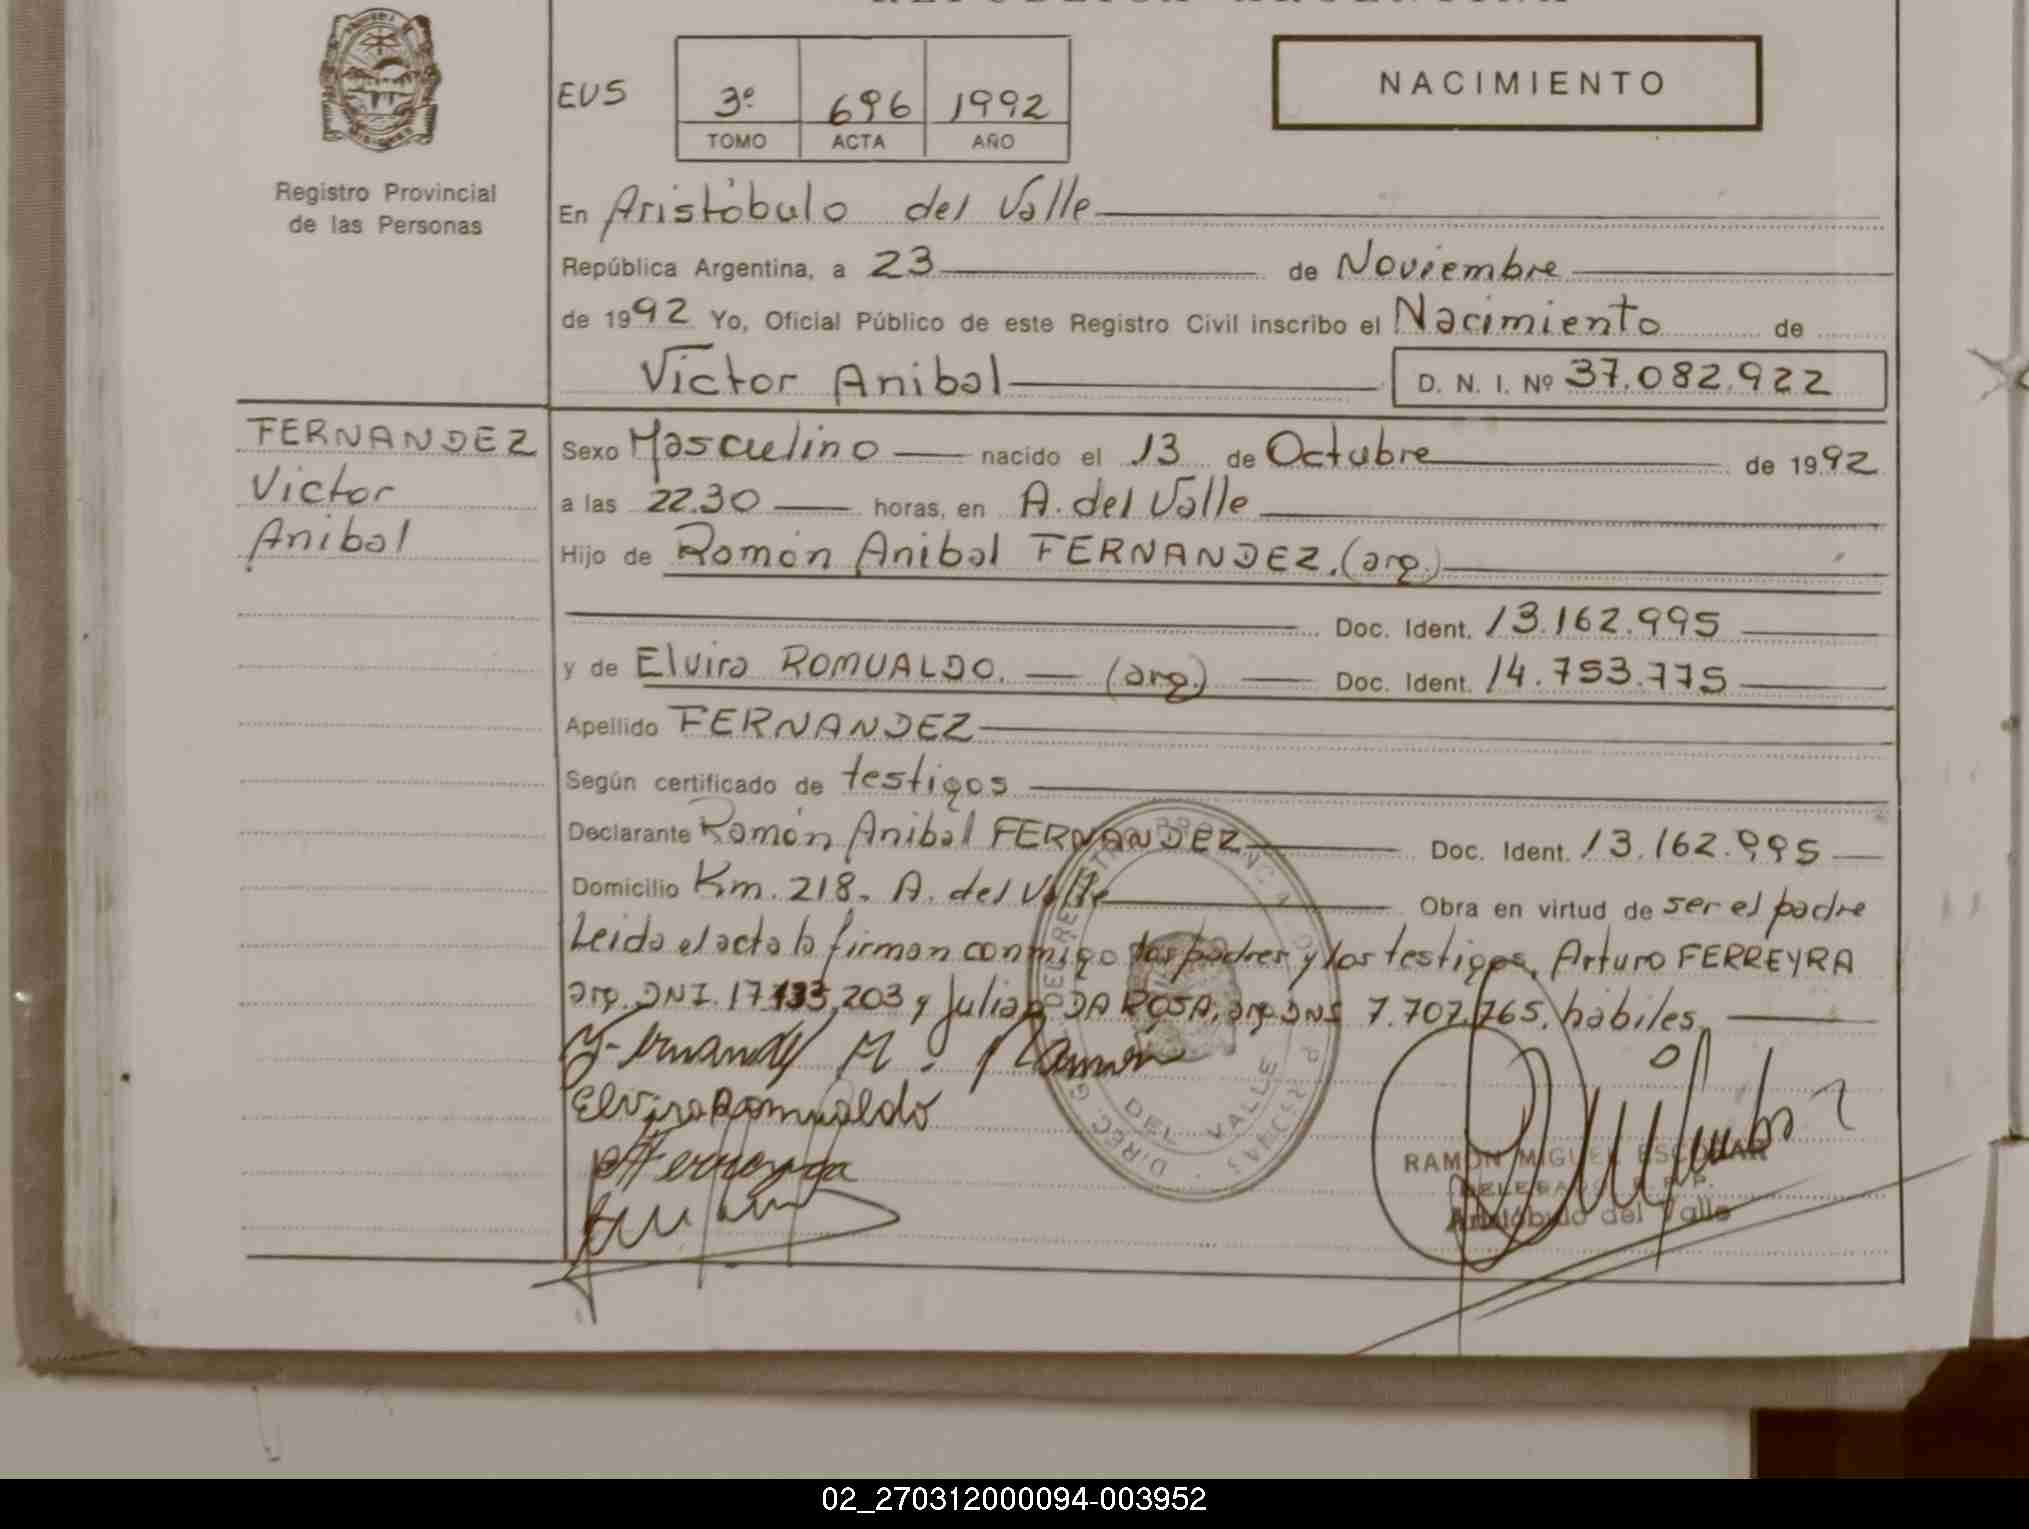 REPUBLICA ARGENTINA
EVS
3º 696 1992
TOMO ACTA AÑO
NACIMIENTO
Registro Provincial
de las Personas
En Aristóbulo del Valle
República Argentina, a 23 de Noviembre
de 1992 Yo, Oficial Público de este Registro Civil inscribo el Nacimiento de
Victor Anibal D. N. I. Nº 37.082.922
FERNANDEZ
Victor
Anibal
Sexo Masculino nacido el 13 de Octubre de 1992
a las 22.30 horas, en A. del Valle
Hijo de Ramón Anibal FERNANDEZ. (arg.)
Doc. Ident. 13.162.995
y de Elvira ROMUALDO. (arg.) Doc. Ident. 14.753.775
Apellido FERNANDEZ
Según certificado de testigos
Declarante Ramón Anibal FERNANDEZ Doc. Ident. 13.162.995
Domicilio Km. 218. A. del Valle Obra en virtud de ser el padre
Leida el acta la firman conmigo los padres y los testigos, Arturo FERREYRA
arg. DNI. 17.133.203 y Julian DA ROSA, arg. DNI 7.707.765. hábiles.
Fernandez M. Ramon
Elvira Romualdo
A Ferreyra
DEL VALLE
RAMON MIGUEL ESCOBAR
DELEGADO R. P. P.
Aristóbulo del Valle
02_270312000094-003952